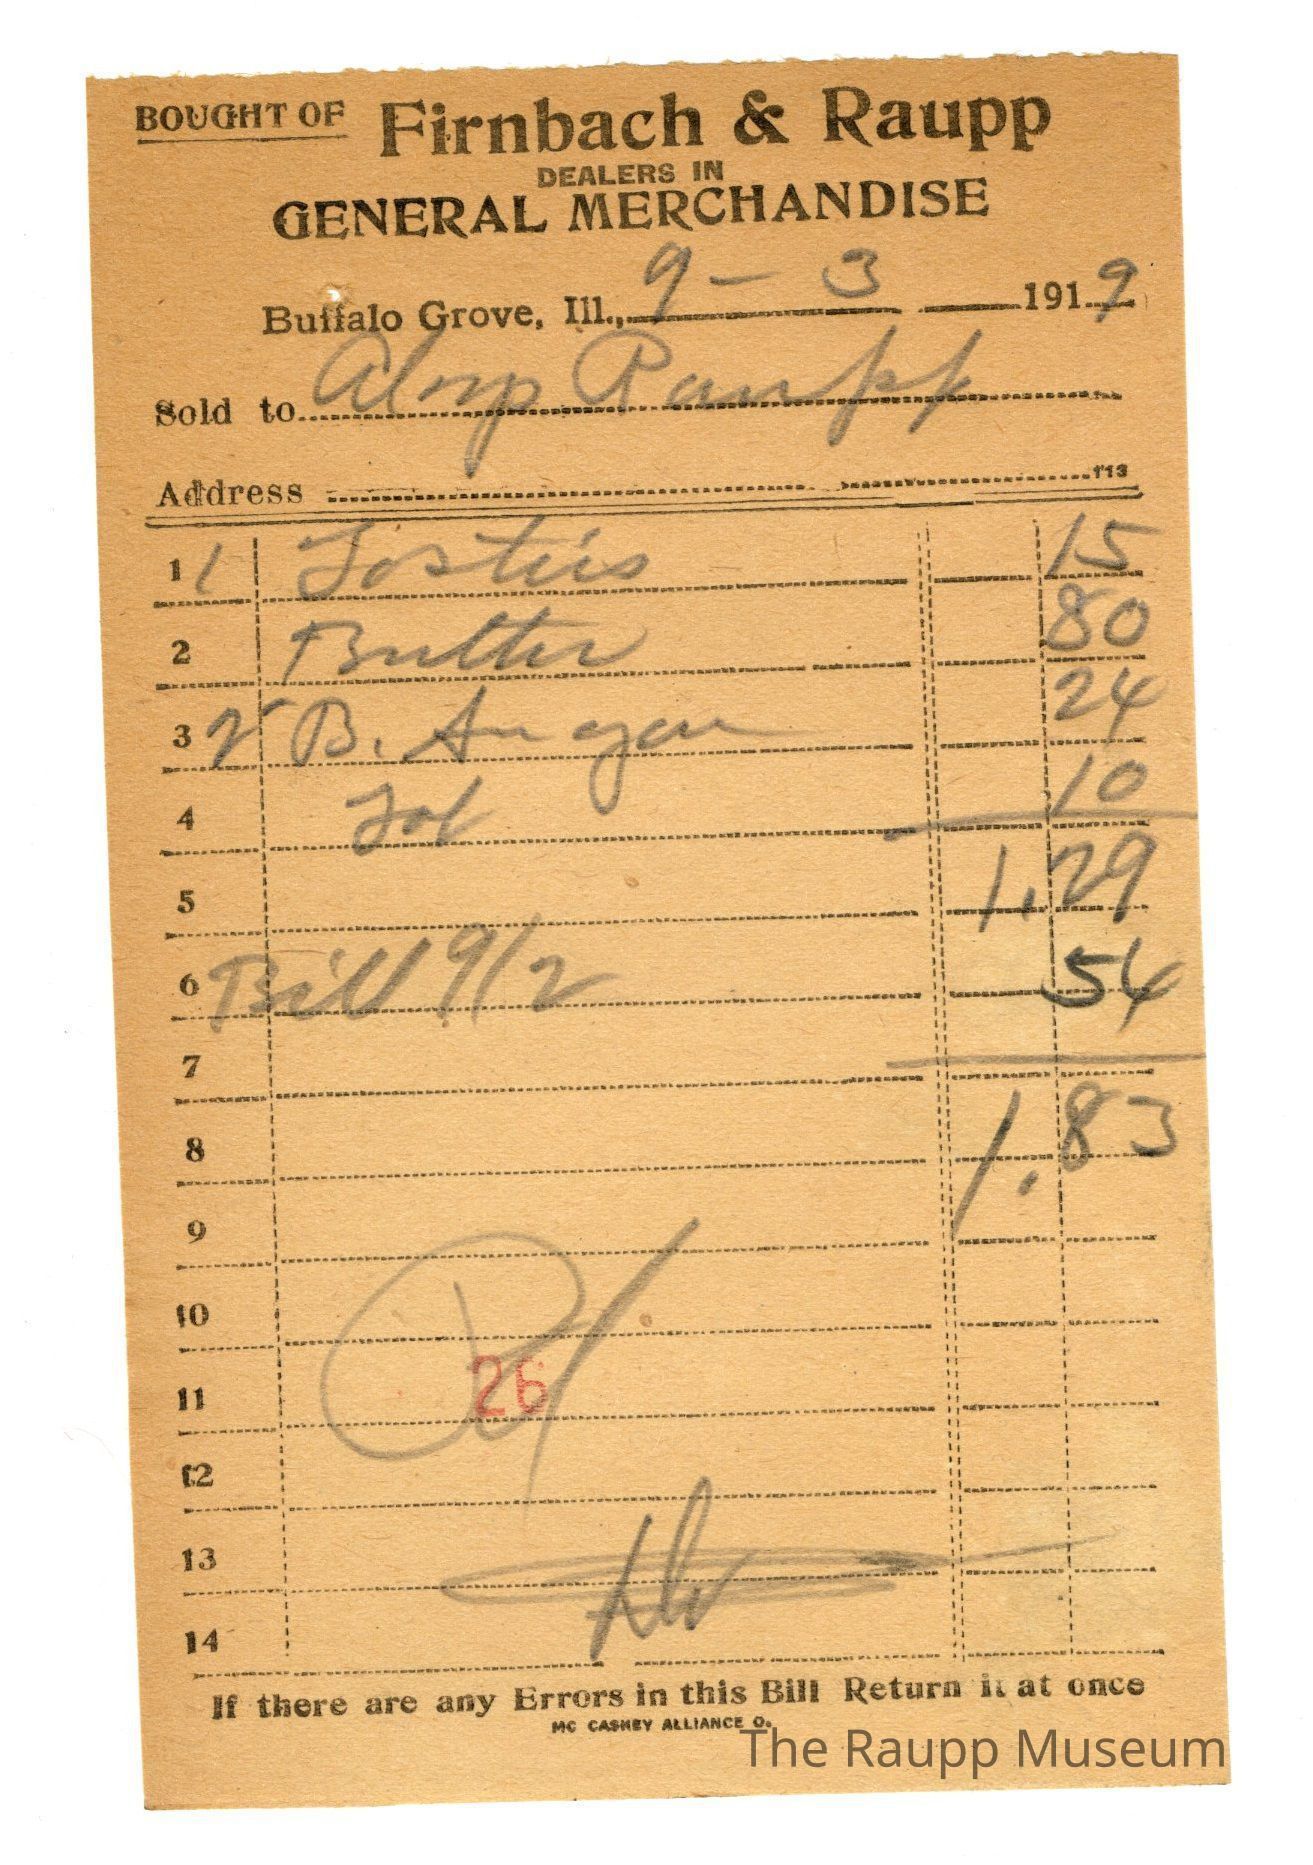 BOUGHT OF Firnbach & Raupp
DEALERS IN
GENERAL MERCHANDISE
Buffalo Grove, Ill., 9 - 3 1919
Sold to Aloys Raupp
Address 113
1 1 Tosties 15
2 Butter 80
3 2 B. Sugar 24
4 10
5 1.29
6 Bill 9/2 54
7
8 1.83
9
10
11 26
12
13
14
If there are any Errors in this Bill Return it at once
MC CASKEY ALLIANCE O.
The Raupp Museum